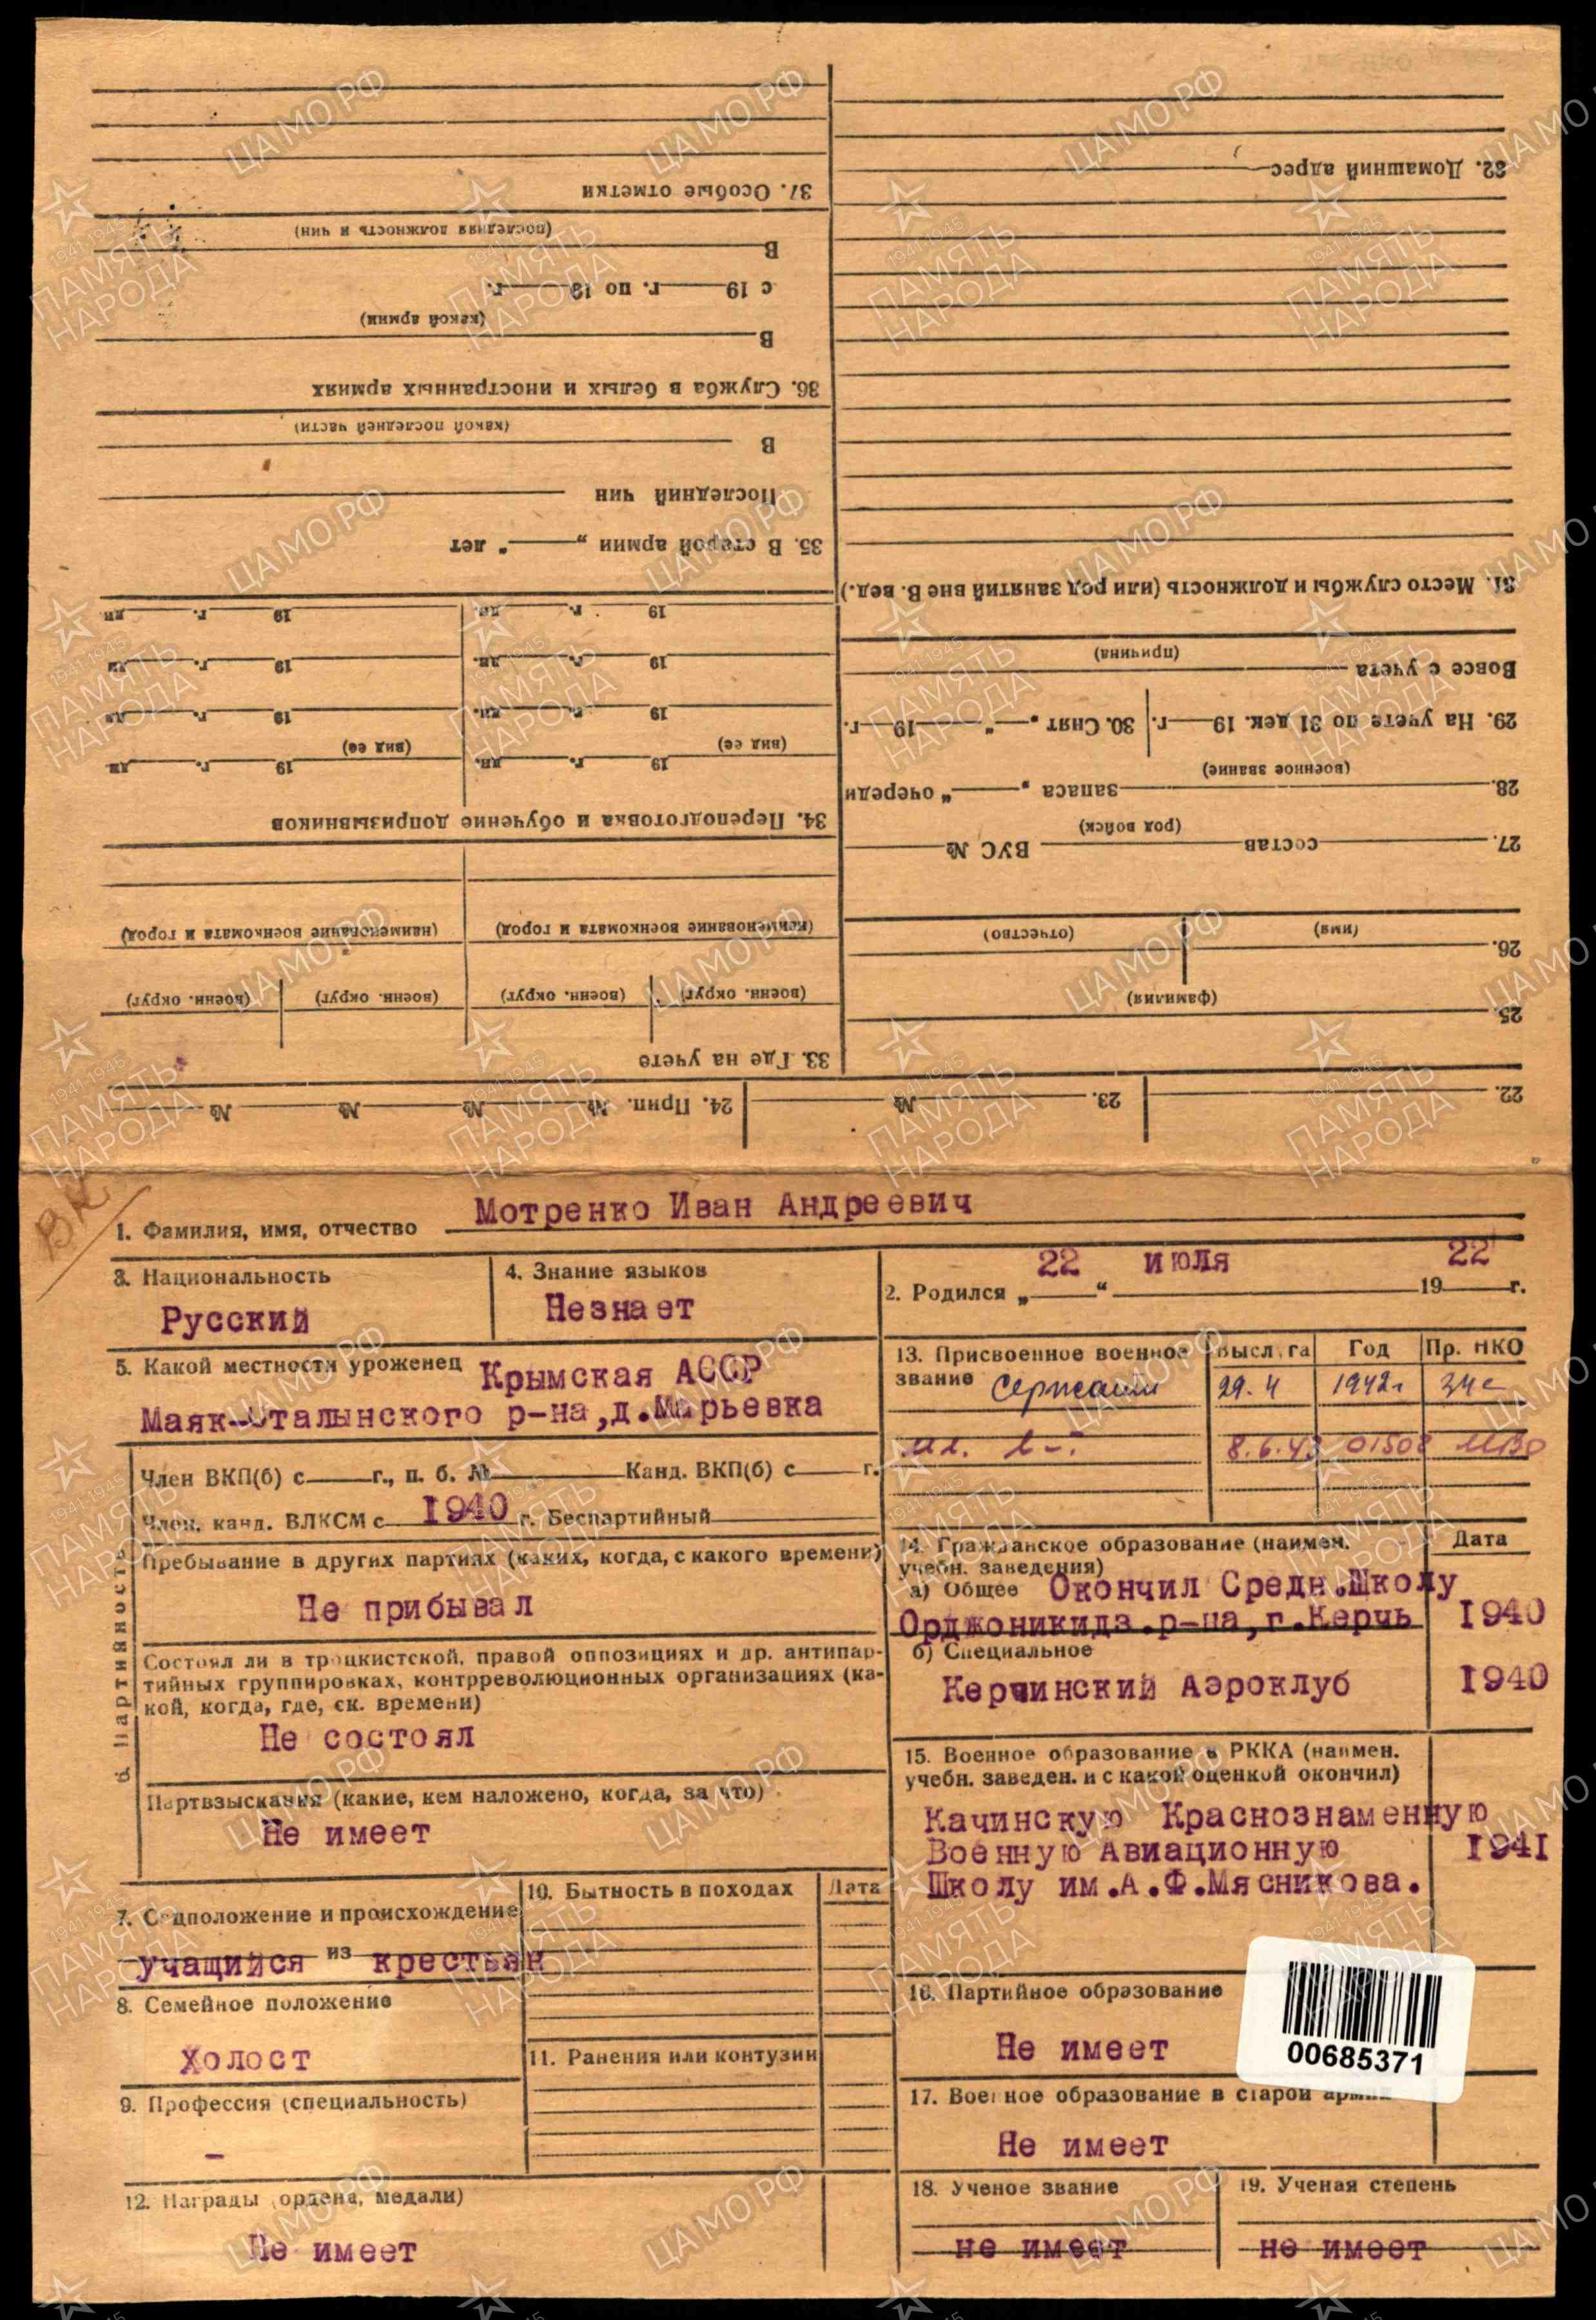 1. Фамилия, имя, отчество Мотренко Иван Андреевич
2. Родился „22“ июля 1922 г.
3. Национальность
Русский
4. Знание языков
Незнает
5. Какой местности уроженец Крымская АССР
Маяк-Сталынского р-на,д.Марьевка
6. Партийность
Член ВКП(б) с г., п. б. № Канд. ВКП(б) с г.
Член, канд. ВЛКСМ с 1940 г. Беспартийный
Пребывание в других партиях (каких, когда, с какого времени)
Не прибывал
Состоял ли в троцкистской, правой оппозициях и др. антипар-
тийных группировках, контрреволюционных организациях (ка-
кой, когда, где, ск. времени)
Не состоял
Партвзыскания (какие, кем наложено, когда, за что)
Не имеет
7. Соцположение и происхождение
учащийся из крестьян
8. Семейное положение
Холост
9. Профессия (специальность)
–
10. Бытность в походах Дата
11. Ранения или контузии
12. Награды (ордена, медали)
Не имеет
13. Присвоенное военное звание Высл. га Год Пр. НКО
Сержант 29.4 1942г
8.6.43 01508 МВО
14. Гражданское образование (наимен. учебн. заведения) Дата
а) Общее Окончил Средн.Школу
Орджоникидз.р-на,г.Керчь 1940
б) Специальное
Керчинский Аэроклуб 1940
15. Военное образование в РККА (наимен.
учебн. заведен. и с какой оценкой окончил)
Качинскую Краснознаменную
Военную Авиационную 1941
Школу им.А.Ф.Мясникова.
16. Партийное образование
Не имеет
00685371
17. Военное образование в старой армии
Не имеет
18. Ученое звание
не имеет
19. Ученая степень
не имеет
22.
23. №
24. Прип. № № № №
25.
(фамилия)
26.
(имя) (отчество)
27. состав ВУС №
(род войск)
28. запаса „ “ очереди
(военное звание)
29. На учете по 31 дек. 19 г. 30. Снят „ “ 19 г.
Вовсе с учета
(причина)
31. Место службы и должность (или род занятий вне В. вед.)
32. Домашний адрес
33. Где на учете
(воен. округ) (воен. округ) (воен. округ) (воен. округ)
(наименование военкомата и город) (наименование военкомата и город)
34. Переподготовка и обучение допризывников
19 г. дн. 19 г. дн.
(вид ее) (вид ее)
19 г. дн. 19 г. дн.
19 г. дн. 19 г. дн.
19 г. дн. 19 г. дн.
35. В старой армии „ “ лет
Последний чин
В
(какой последней части)
36. Служба в белых и иностранных армиях
В
(какой армии)
с 19 г. по 19 г.
В
(последняя должность и чин)
37. Особые отметки
ЦАМО.РФ
1941-1945
ПАМЯТЬ
НАРОДА